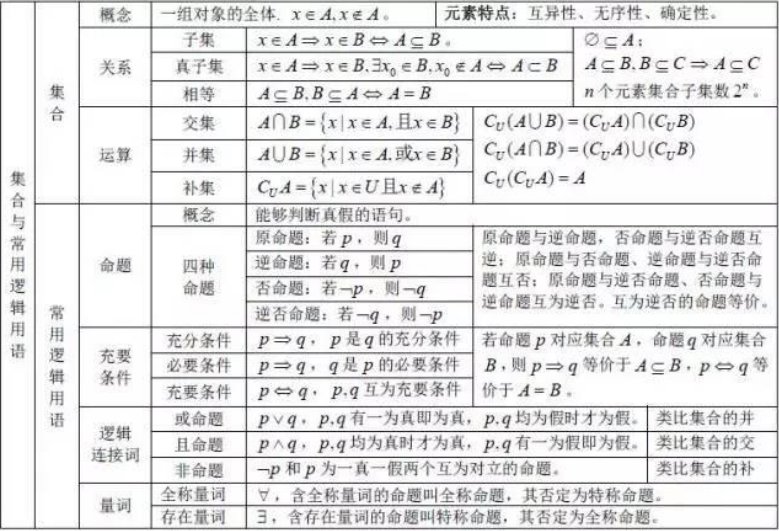 集合与常用逻辑用语
集合
概念
一组对象的全体. x∈A, x∉A。
元素特点：互异性、无序性、确定性。
关系
子集
x∈A⇒x∈B⇔A⊆B。
∅⊆A；
真子集
x∈A⇒x∈B,∃x₀∈B,x₀∉A⇔A⊂B
A⊆B,B⊆C⇒A⊆C
相等
A⊆B,B⊆A⇔A=B
n个元素集合子集数2ⁿ。
运算
交集
A∩B={x|x∈A,且x∈B}
C_U(A∪B)=(C_U A)∩(C_U B)
并集
A∪B={x|x∈A.或x∈B}
C_U(A∩B)=(C_U A)∪(C_U B)
补集
C_U A={x|x∈U且x∉A}
C_U(C_U A)=A
常用逻辑用语
命题
概念
能够判断真假的语句。
四种
命题
原命题：若p，则q
逆命题：若q，则p
否命题：若¬p，则¬q
逆否命题：若¬q，则¬p
原命题与逆命题，否命题与逆否命题互
逆；原命题与否命题、逆命题与逆否命
题互否；原命题与逆否命题、否命题与
逆命题互为逆否。互为逆否的命题等价。
充要
条件
充分条件
p⇒q，p是q的充分条件
必要条件
p⇒q，q是p的必要条件
充要条件
p⇔q，p,q互为充要条件
若命题p对应集合A，命题q对应集合
B,则p⇒q等价于A⊆B，p⇔q等
价于A=B。
逻辑
连接词
或命题
p∨q，p,q有一为真即为真，p,q均为假时才为假。
类比集合的并
且命题
p∧q，p,q均为真时才为真，p,q有一为假即为假。
类比集合的交
非命题
¬p和p为一真一假两个互为对立的命题。
类比集合的补
量词
全称量词
∀，含全称量词的命题叫全称命题，其否定为特称命题。
存在量词
∃，含存在量词的命题叫特称命题，其否定为全称命题。